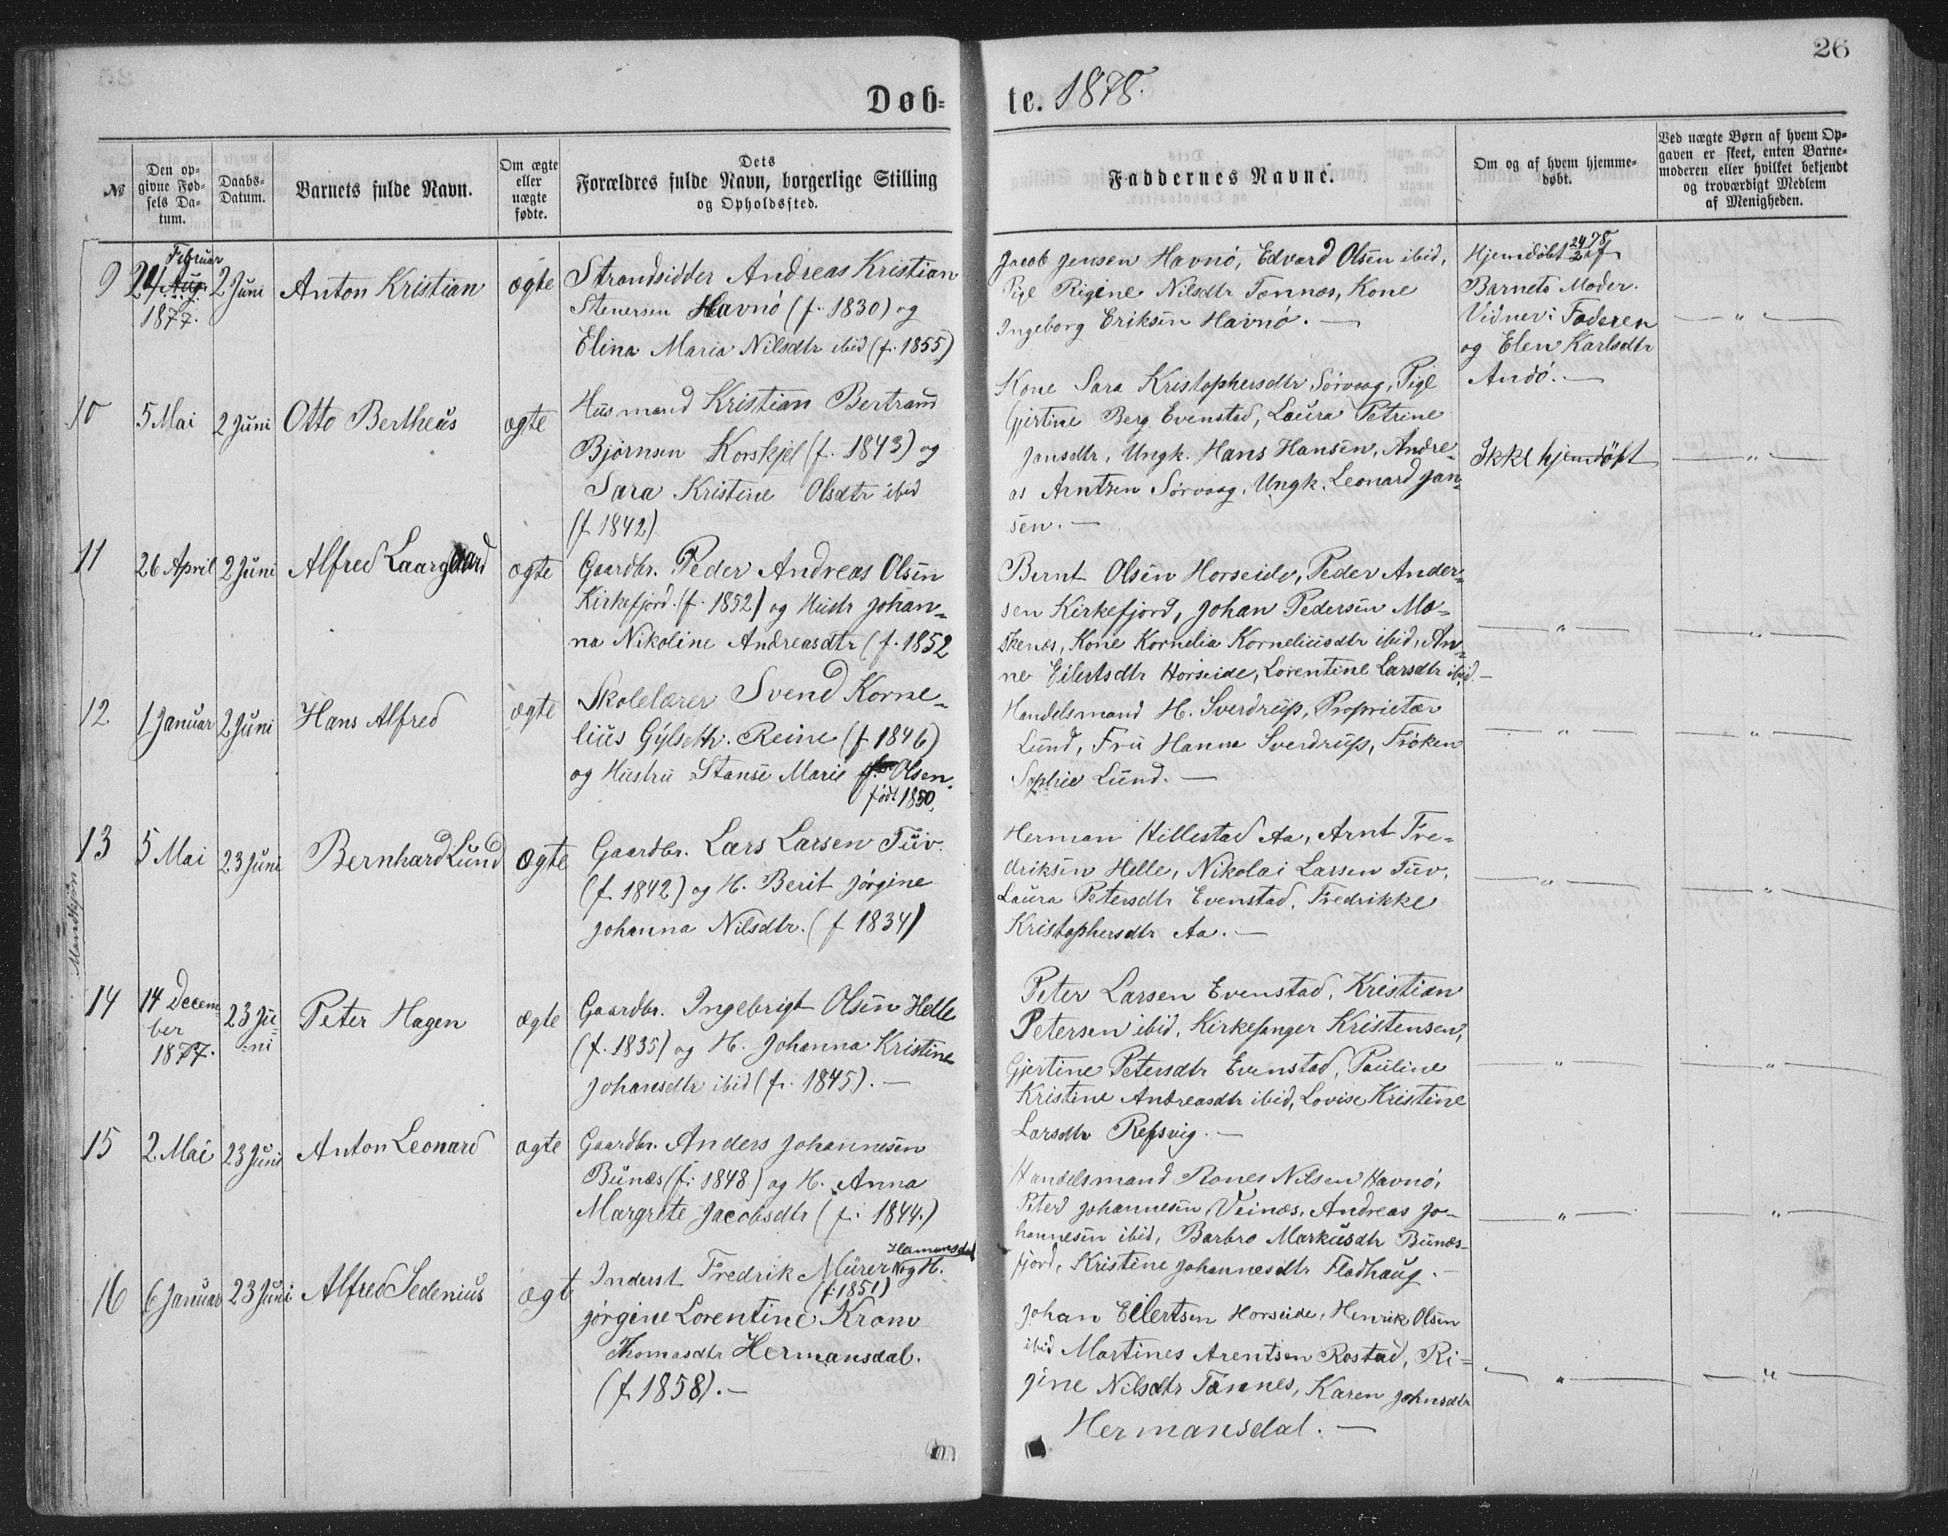 26
Døb-
te. 1878.
№
Den op-
givne Fød-
sels Da-
tum.
Daabs-
Datum.
Barnets fulde Navn.
Om ægte
eller
uægte
fødte.
Dets
Forældres fulde Navn, borgerlige Stilling
og Opholdssted.
Faddernes Navne.
Om og af hvem hjemme-
døbt.
Ved uægte Børn af hvem Op-
gaven er skeet, enten Barne-
moderen eller hvilket bekjendt
og troværdigt Medlem
af Menigheden.
Mandkjøn
9
Februar
24 Aug.
1877.
2 Juni
Anton Kristian
ægte
Strandsidder Andreas Kristian
Stenersen Havnø (f. 1830) og
Elina Maria Nilsdtr ibid (f. 1855)
Jacob Jensen Havnø, Edvard Olsen ibid,
Pige Rigine Nilsdtr Tennes, Kone
Ingeborg Eriksen Havnø. —
Hjemdøbt 24/2 78 af
Barnets Moder.
Vidner: Faderen
og Elen Karlsdtr
Andø. —
— „ —
10
5 Mai
2 Juni
Otto Bertheus
ægte
Husmand Kristian Bertrand
Bjørnsen Korskjel (f. 1843) og
Sara Kristine Olsdtr ibid
(f 1842)
Kone Sara Kristophersdtr Sørvaag, Pige
Gjertine Berg Evenstad, Laura Petrine
Jansdtr, Ungk. Hans Hansen, Andre-
as Arntzen Sørvaag, Ungk. Leonard Jan-
sen. —
Ikke hjemdøbt
— „ —
11
26 April
2 Juni
Alfred Laargaard
ægte
Gaardbr. Peder Andreas Olsen
Kirkefjord (f. 1852) og Hustr Johan-
na Nikoline Andreasdtr (f. 1852
Bernt Olsen Horseide, Peder Ander-
sen Kirkefjord, Johan Pedersen Mo-
skenæs, Kone Kornelia Korneliusdtr ibid, An-
ne Eilertsdtr Horseide, Lorentine Larsdtr ibid. —
— „ —
— „ —
12
1 Januar
2 Juni
Hans Alfred
ægte
Skolelærer Svend Korne-
lius Gylseth. Reine (f 1846)
og Hustru Stansi Marie Olsen,
født 1850.
Handelsmand H. Sverdrup, Proprietær
Lund, Fru Hanna Sverdrup, Frøken
Sophie Lund. —
— „ —
— „ —
13
5 Mai
23 Juni
Bernhard Lund
ægte
Gaardbr. Lars Larsen Tuv.
(f. 1842) og H. Berit Jørgine
Johanna Nilsdtr. (f 1834)
Herman Hillestad Aa, Arnt Fre-
driksen Helle, Nikolai Larsen Tuv,
Laura Petersdtr Evenstad, Fredrikke
Kristophersdtr Aa. —
— „ —
— „ —
14
14 Decem
ber
1877.
23 Ju-
ni
Peter Hagen
ægte
Gaardbr. Ingebrigt Olsen Helle
(f. 1835) og H. Johanna Kristine
Johansdtr ibid (f. 1845). —
Peter Larsen Evenstad, Kristian
Petersen ibid, Kirkesanger Kristensen,
Gjertine Petersdtr Evenstad, Pauline
Kristine Andreasdtr ibid, Lovise Kristine
Larsdtr Refsvig. —
— „ —
— „ —
15
2 Mai
23 Juni
Anton Leonard
ægte
Gaardbr. Anders Johannesen
Bunæs (f. 1848) og H. Anna
Margrete Jacobsdtr (f. 1844.)
Handelsmand Rones Nilsen Havnø,
Peter Johannesen Veinæs, Andreas Jo-
hannesen ibid, Barbro Markusdtr Bunæs-
fjord, Kristine Johannesdtr Fladhaug. —
— „ —
— „ —
16
6 Januar
23 Juni
Alfred Sedenius
ægt
Hermansdal
Inderst Fredrik Mürer og H.
(f. 1851)
Jørgine Lorentine Krane
Thomasdtr Hermansdal.
(f. 1858). —
Johan Eilertsen Horseide, Henrik Olsen
ibid Martines Arentsen Rostad, Ri-
gine Nilsdtr Tennes, Karen Johnsdtr
Hermansdal. —
— „ —
— „ —